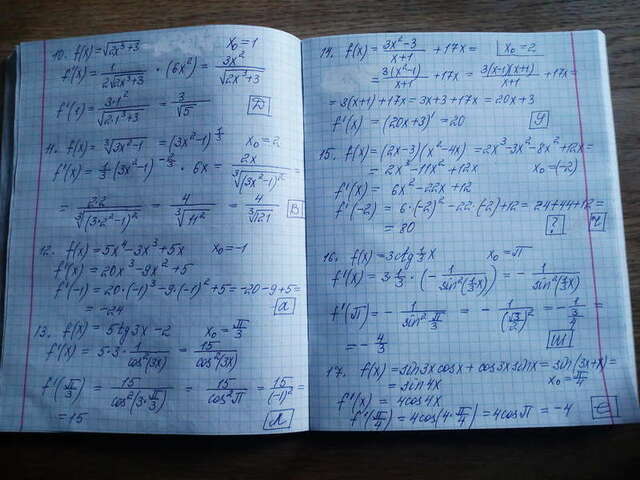 10. f(x) = √(2x³+3)   x₀ = 1
f'(x) = 1/(2√(2x³+3)) · (6x²) = 3x²/√(2x³+3)
f'(1) = 3·1²/√(2·1³+3) = 3/√5
11. f(x) = ∛(3x²-1) = (3x²-1)^(1/3)   x₀ = 2
f'(x) = 1/3 (3x²-1)^(-2/3) · 6x = 2x/∛((3x²-1)²) =
= 2·2/∛((3·2²-1)²) = 4/∛(11²) = 4/∛121   В
12. f(x) = 5x⁴-3x³+5x   x₀ = -1
f'(x) = 20x³-9x²+5
f'(-1) = 20·(-1)³-9·(-1)²+5 = -20-9+5 =
= -24   а
13. f(x) = 5tg3x-2   x₀ = π/3
f'(x) = 5·3·1/cos²(3x) = 15/cos²(3x)
f'(π/3) = 15/cos²(3·π/3) = 15/cos²π = 15/(-1)² =
= 15   Л
14. f(x) = (3x²-3)/(x+1) + 17x =   x₀ = 2
= 3(x²-1)/(x+1) + 17x = 3(x-1)(x+1)/(x+1) + 17x =
= 3(x+1)+17x = 3x+3+17x = 20x+3
f'(x) = (20x+3)' = 20
15. f(x) = (2x-3)(x²-4x) = 2x³-3x²-8x²+12x =
= 2x³-11x²+12x   x₀ = (-2)
f'(x) = 6x²-22x+12
f'(-2) = 6·(-2)²-22·(-2)+12 = 24+44+12 =
= 80   ?   Ч
16. f(x) = 3ctg 1/3 x   x₀ = π
f'(x) = 3·1/3·(-1/sin²(1/3x)) = -1/sin²(1/3x)
f'(π) = -1/sin² π/3 = -1/(√3/2)² = -1/(3/4) =
= -4/3   Ш
17. f(x) = sin3x cosx + cos3x sinx = sin(3x+x) =
= sin4x   x₀ = π/4
f'(x) = 4cos4x
f'(π/4) = 4cos(4·π/4) = 4cosπ = -4   е